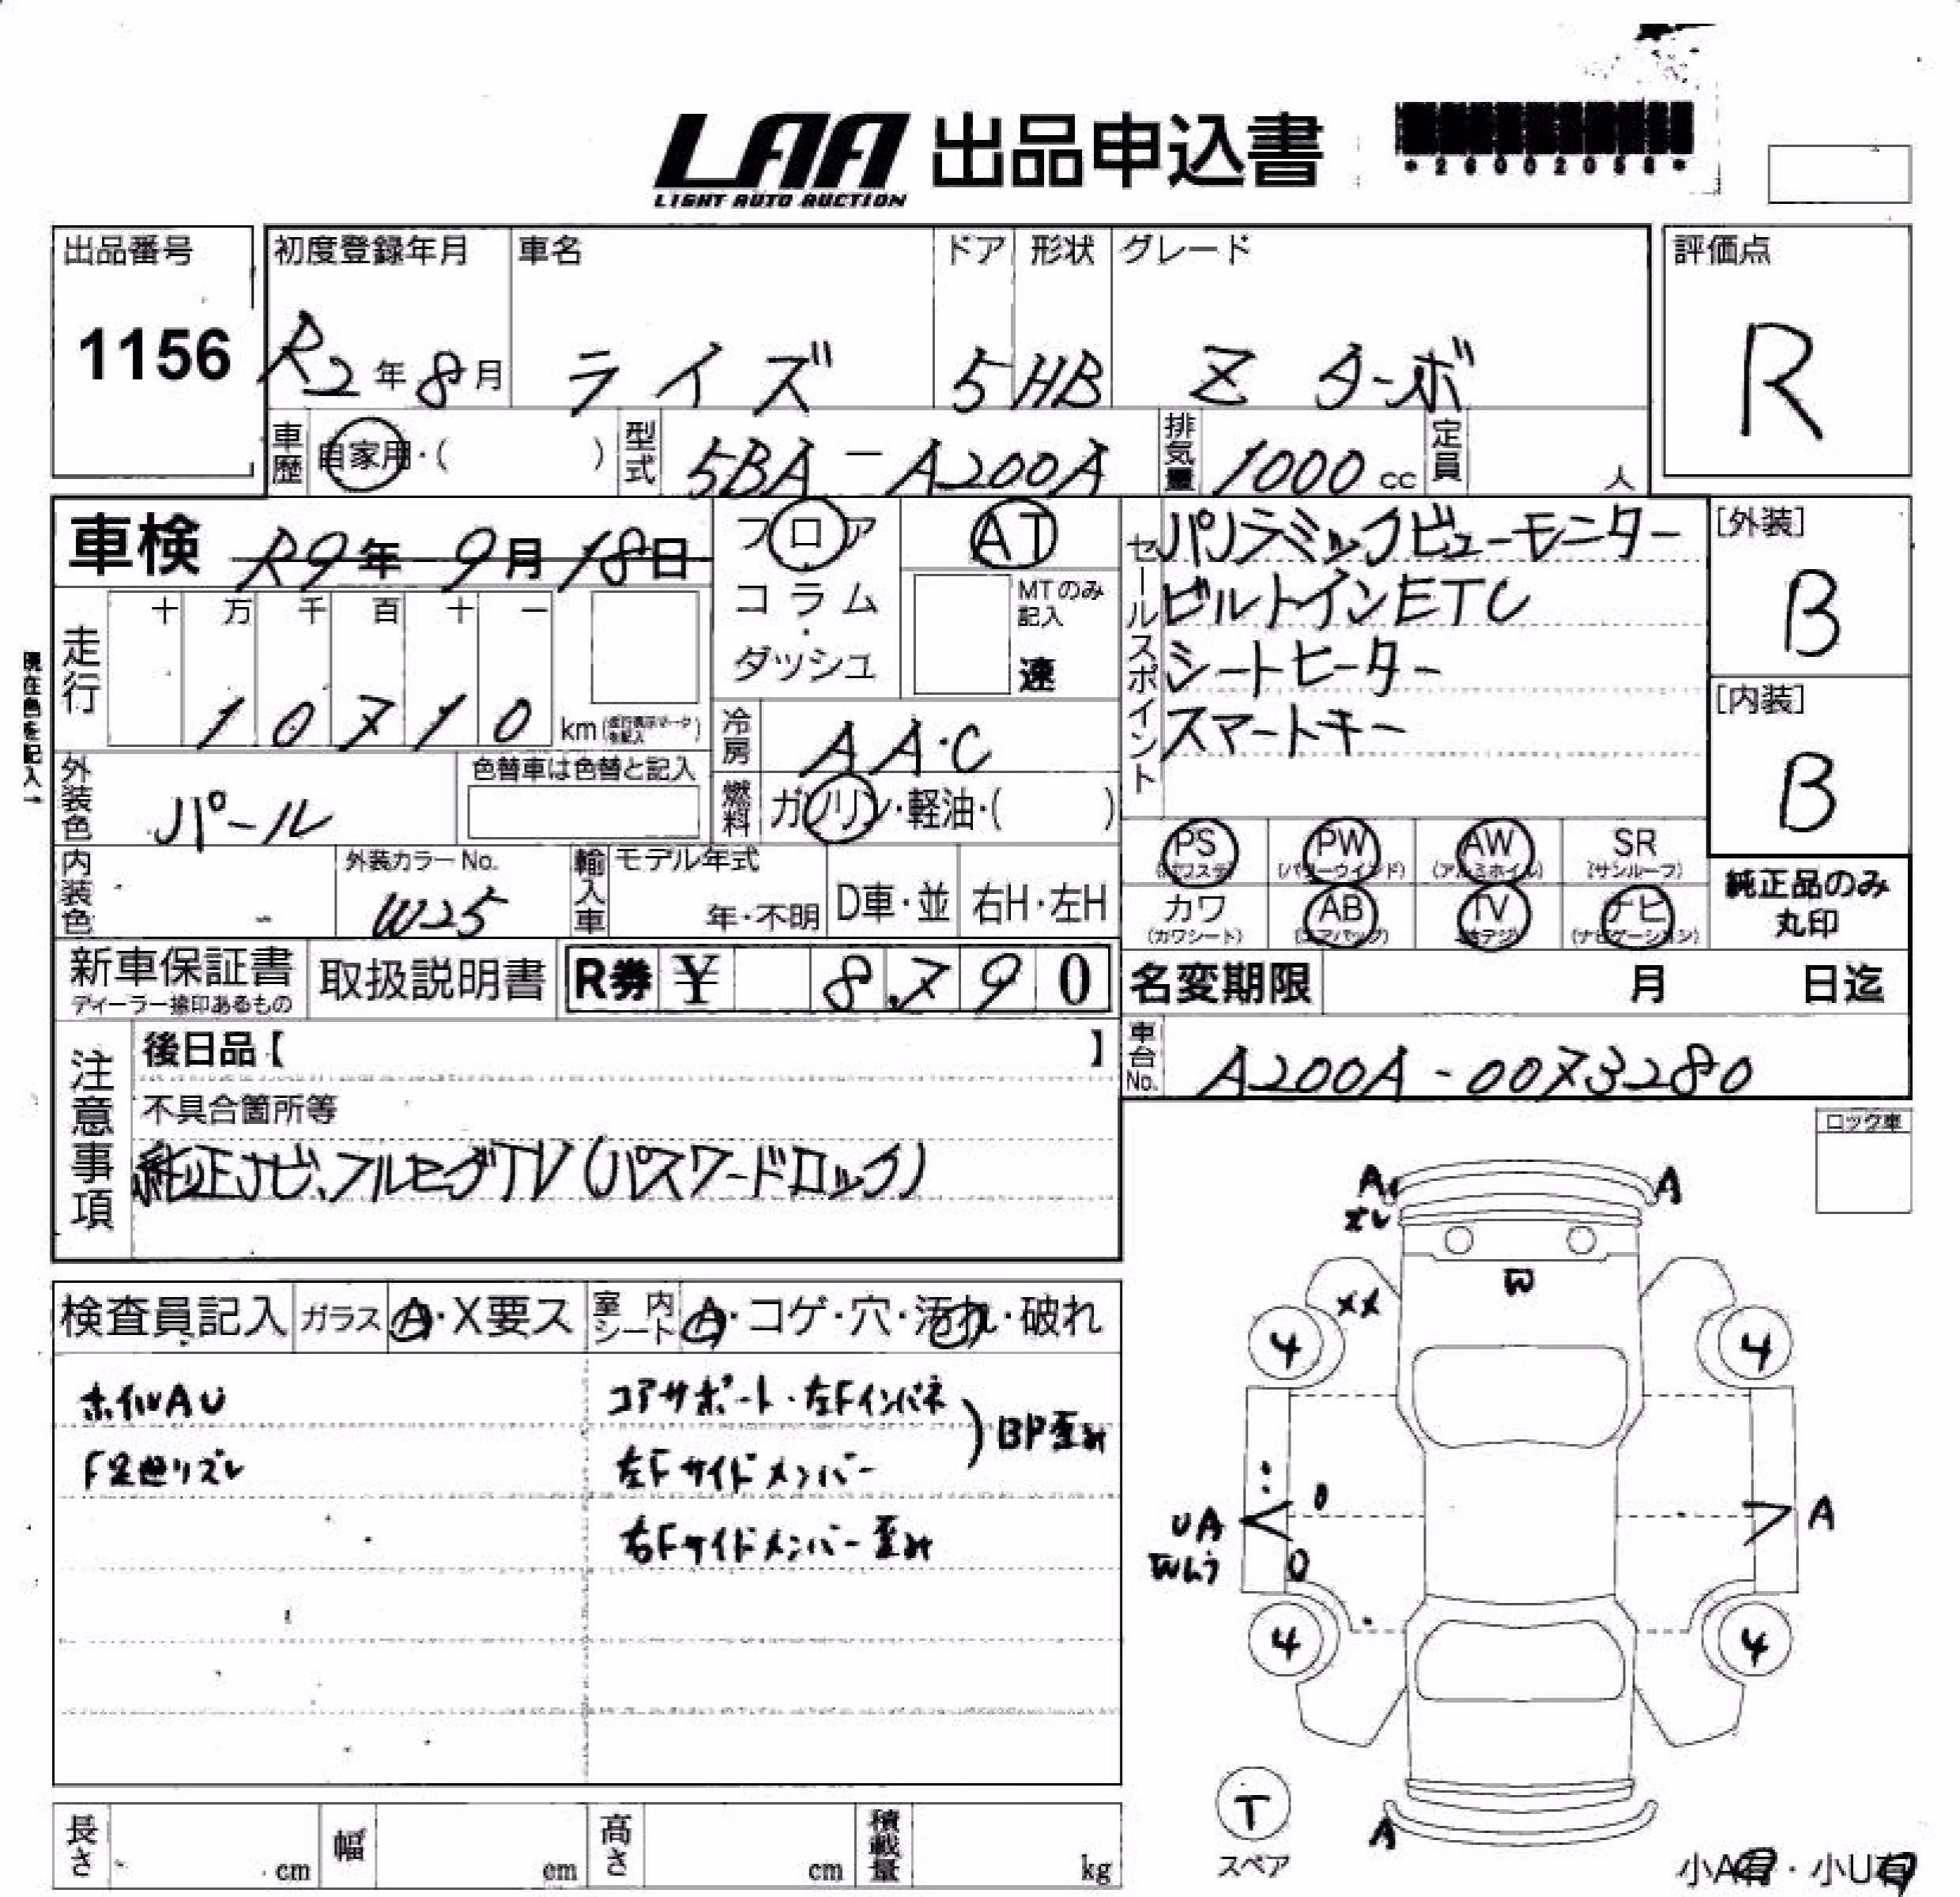 LAA 出品申込書
LIGHT AUTO AUCTION
*26002058*
出品番号
1156
初度登録年月
R2年8月
車名
ライズ
ドア
5
形状
HB
グレード
Z ターボ
評価点
R
車歴 自家用・( )
型式 5BA-A200A
排気量 1000cc
定員 人
車検 R9年9月18日
フロア
コラム
・
ダッシュ
AT
MTのみ記入
速
セールスポイント
パノラミックビューモニター
ビルトインETC
シートヒーター
スマートキー
[外装]
B
[内装]
B
現在色を記入→
走行
十 万 千 百 十 一
1 0 7 1 0 km
冷房 AAC
燃料 ガソリン・軽油・( )
外装色 パール
色替車は色替と記入
内装色 -
外装カラーNo.
W25
輸入車
モデル年式
年・不明
D車・並
右H・左H
PS (パワステ)
PW (パワーウインド)
AW (アルミホイル)
SR (サンルーフ)
カワ (カワシート)
AB (エアバッグ)
TV (地デジ)
ナビ (ナビゲーション)
純正品のみ
丸印
新車保証書
ディーラー捺印あるもの
取扱説明書
R券 ¥ 8,790
名変期限 月 日迄
車台No. A200A-0073280
注意事項
後日品【 】
不具合箇所等
純正ナビ、フルセグTV(パスワードロック)
ロック車
検査員記入
ガラス A・X要ス
室内シート A・コゲ・穴・汚れ・破れ
ホイルAU
F足廻リズレ
コアサポート・左Fインパネ
左Fサイドメンバー
)BP歪み
右Fサイドメンバー歪み
A
ズレ
A
W
XX
4
4
UA
A
4
4
T
スペア
A
小A有・小U有
長さ cm
幅 cm
高さ cm
積載量 kg